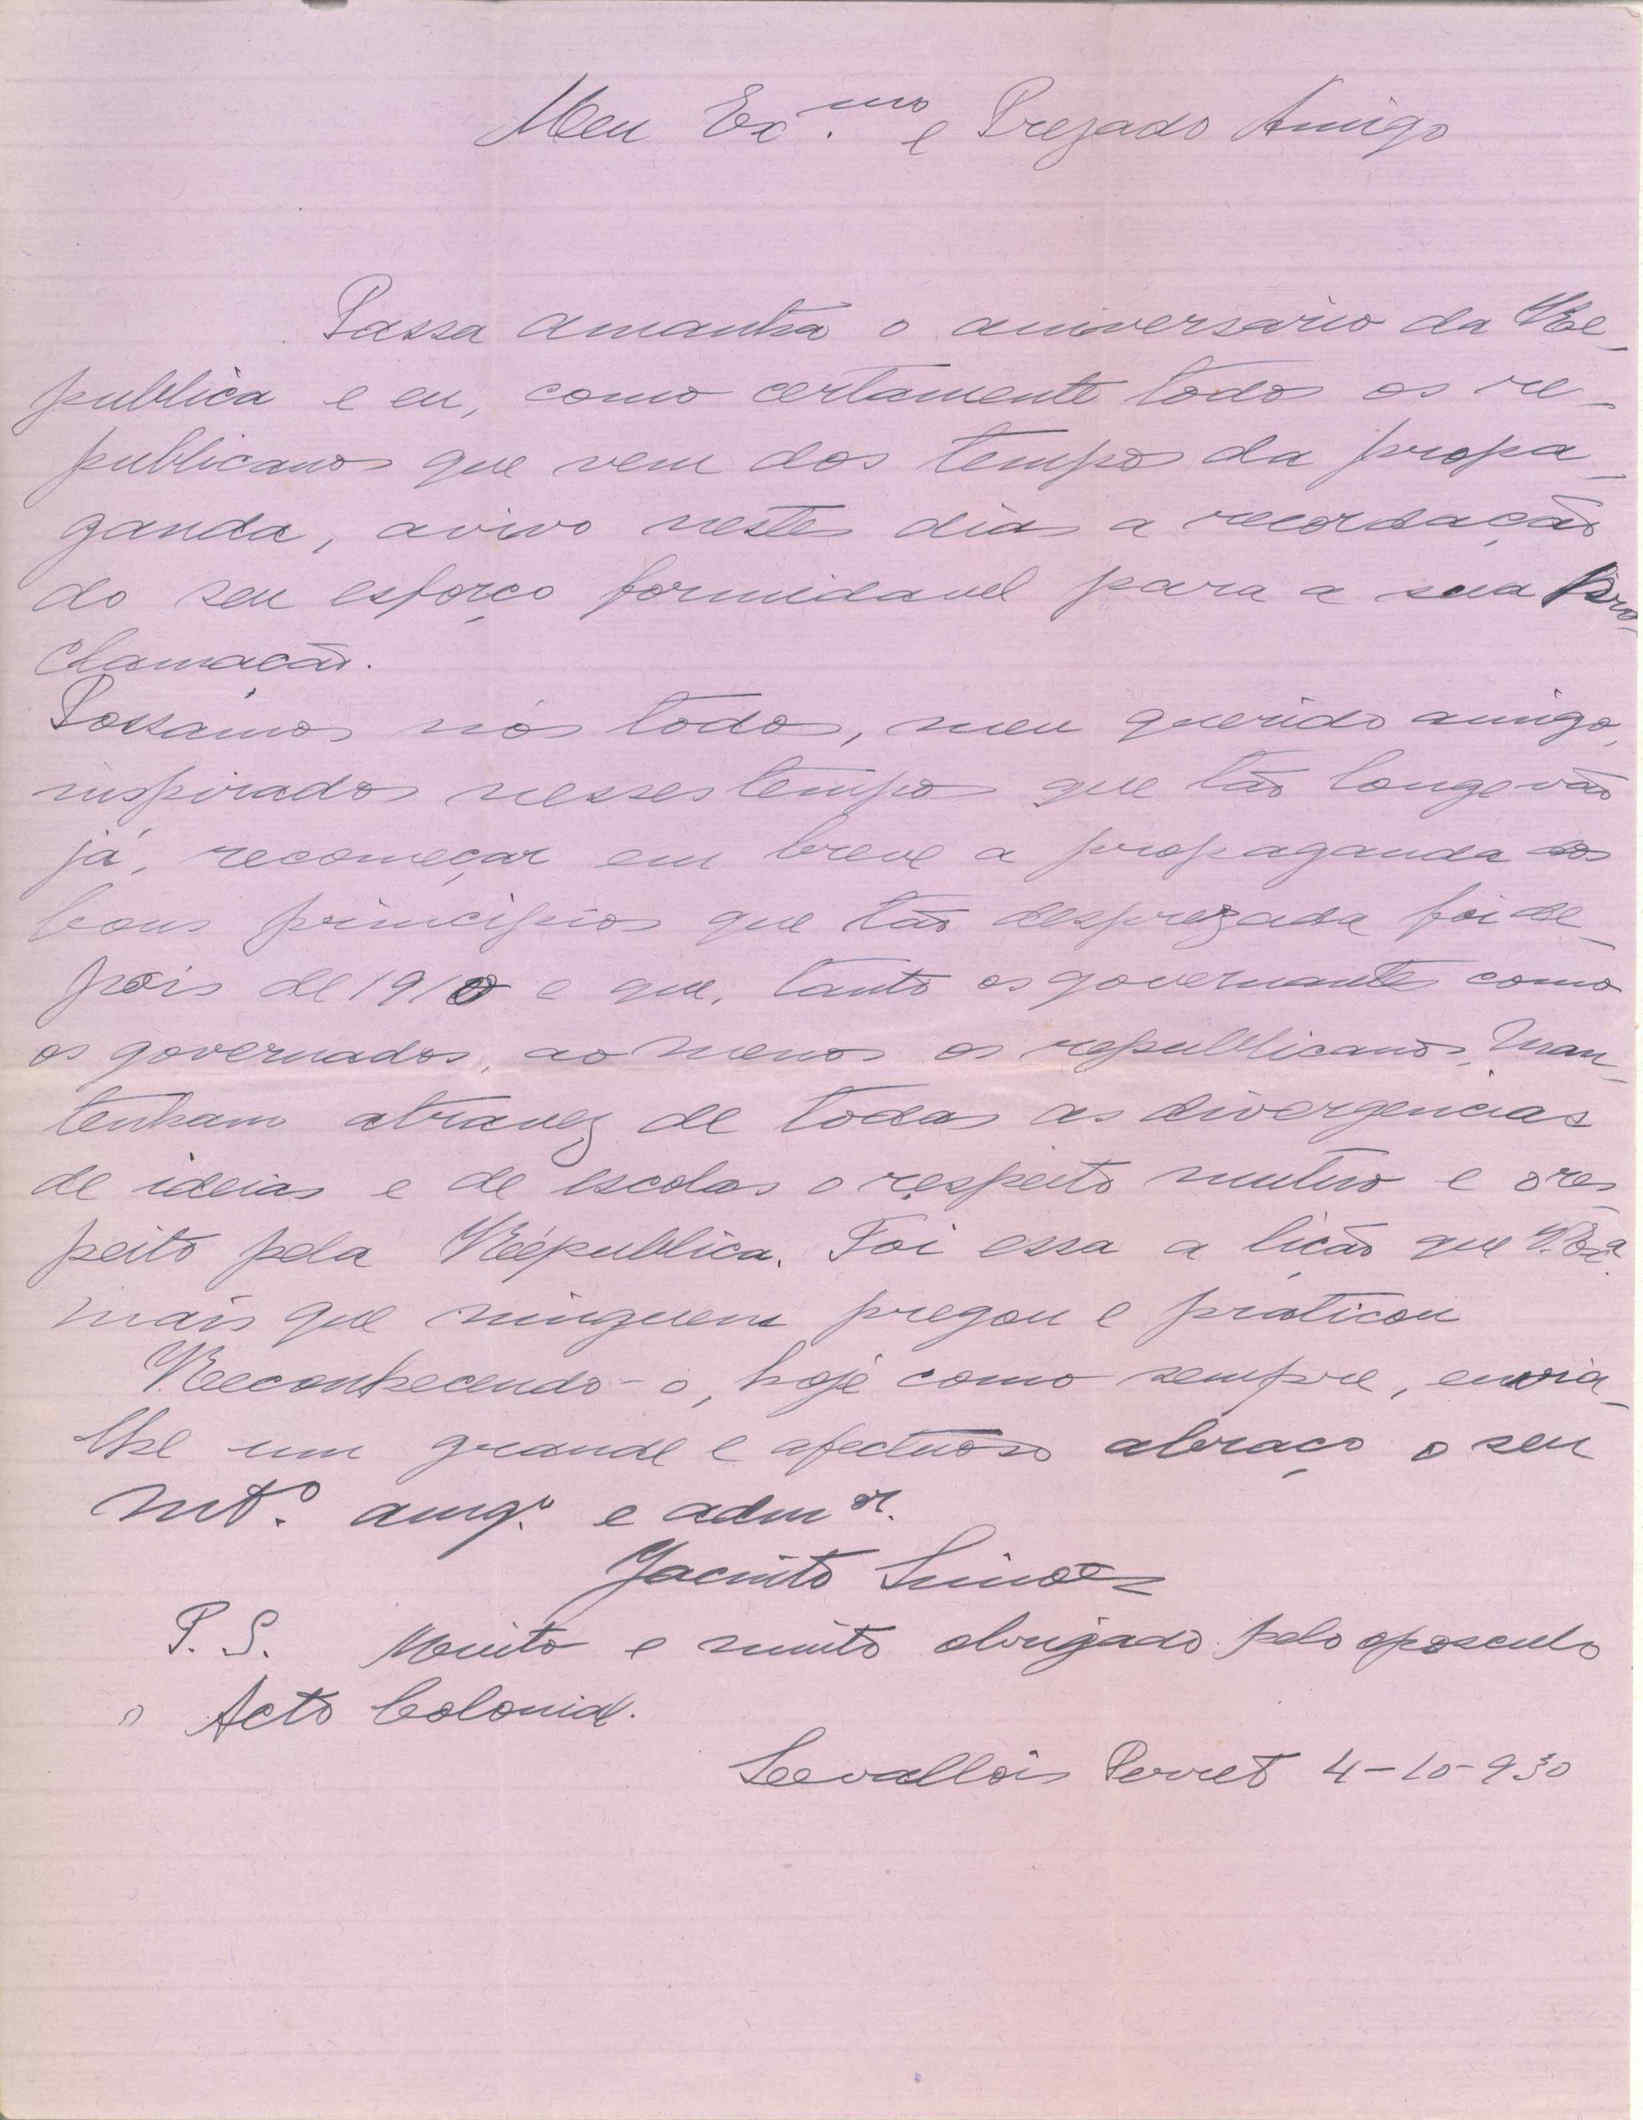 Meu Ex.mo e Prezado Amigo
Passa amanhã o aniversario da Re-
publica e eu, como certamente todos os re-
publicanos que vem dos tempos da propa-
ganda, avivo nestes dias a recordação
do seu esforço formidavel para a sua pro-
clamação.
Possamos nós todos, meu querido amigo,
inspirados nesses tempos que tão longe vão
já, recomeçar em breve a propaganda dos
bons principios que tão desprezada foi de-
pois de 1910 e que, tanto os governantes como
os governados, ao menos os republicanos, man-
tenham atravez de todas as divergencias
de ideias e de escolas o respeito mutuo e o res-
peito pela Républica. Foi essa a lição que V. Ex.a
mais que ninguem pregou e praticou
Reconhecendo-o, hoje como sempre, envia-
lhe um grande e afectuoso abraço o seu
mt.o amg.o e adm.or
Jacinto Simões
P. S. Muito e muito obrigado pelo oposculo
o Acto Colonial.
Levallois Perret 4-10-930